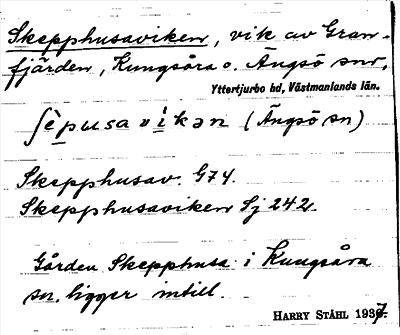 Skepphusaviken, vik av Gran-
fjärden, Kungsåra o. Ängsö snr,
Yttertjurbo hd, Västmanlands län.
ʃèpusavikən (Ängsö sn)
Skepphusav. G74.
Skepphusaviken Sj 242.
Gården Skepphusa i Kungsåra
sn. ligger intill.
HARRY STÅHL 1937.